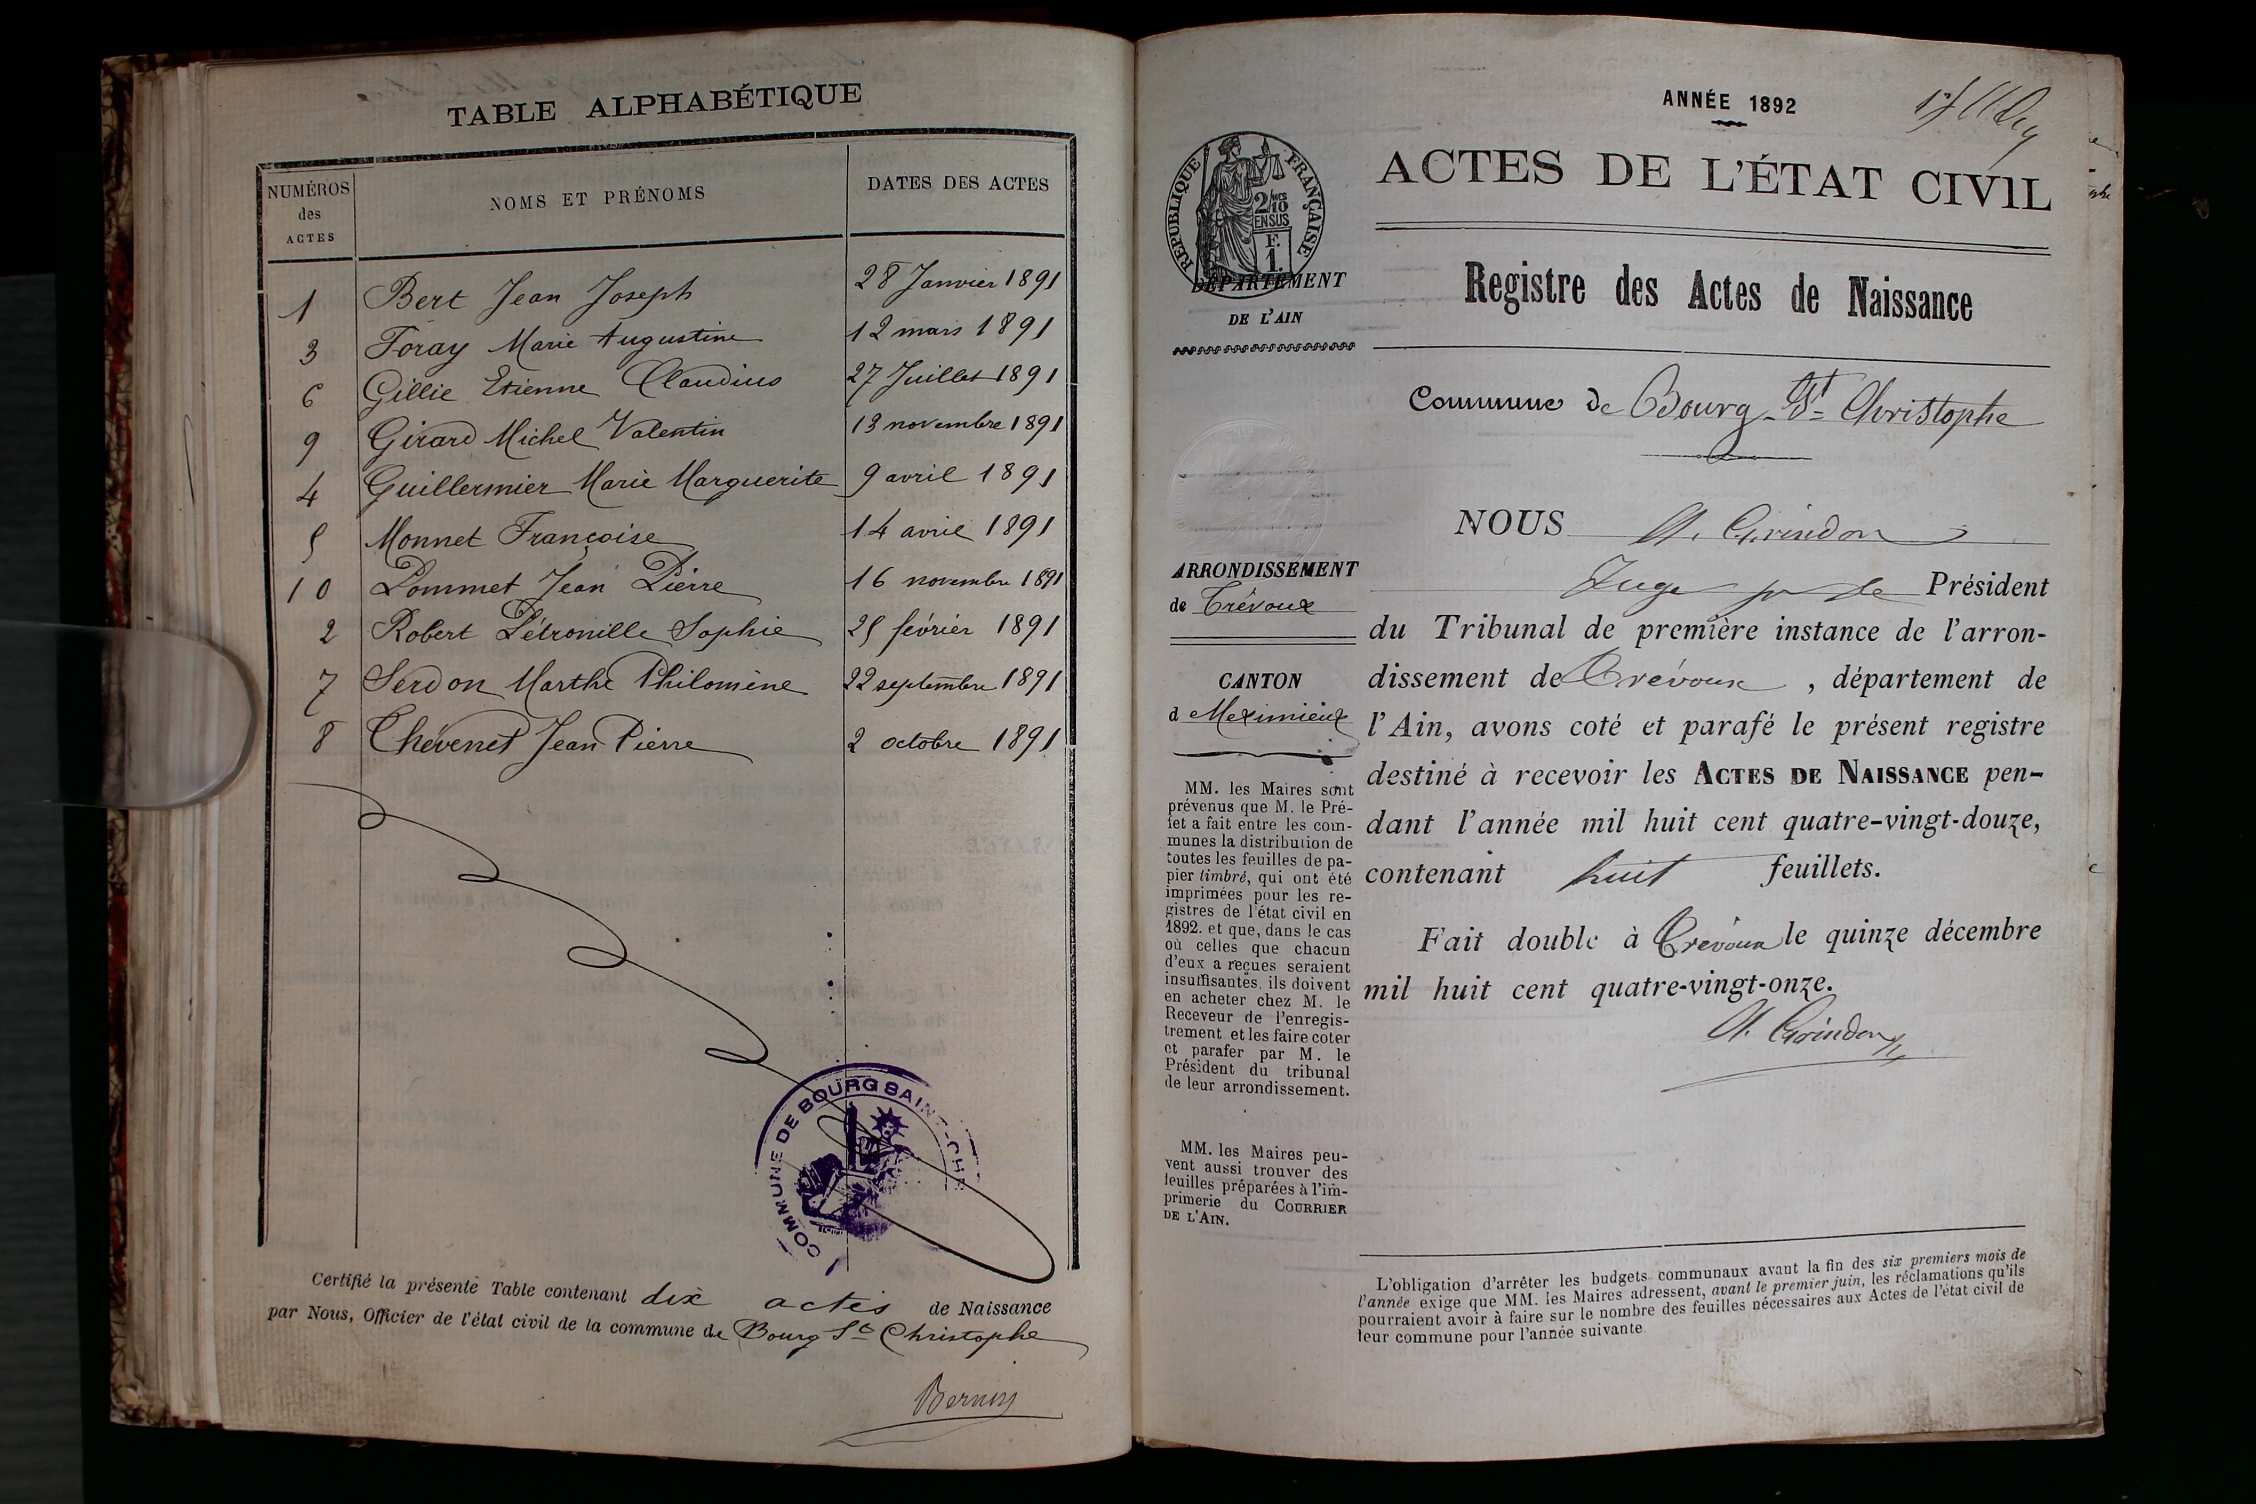 TABLE ALPHABÉTIQUE
NUMÉROS des ACTES NOMS ET PRÉNOMS DATES DES ACTES
1 Bert Jean Joseph 28 Janvier 1891
3 Foray Marie Augustine 12 mars 1891
6 Gillie Etienne Claudius 27 Juillet 1891
9 Girard Michel Valentin 13 novembre 1891
4 Guillermier Marie Marguerite 9 avril 1891
5 Monnet Françoise 14 avril 1891
10 Pommet Jean Pierre 16 novembre 1891
2 Robert Pétronille Sophie 25 février 1891
7 Serdon Marthe Philomène 22 septembre 1891
8 Thévenet Jean Pierre 2 octobre 1891
COMMUNE DE BOURG SAINT-CH
Certifié la présente Table contenant dix actes de Naissance
par Nous, Officier de l'état civil de la commune de Bourg St Christophe
ANNÉE 1892
ACTES DE L'ÉTAT CIVIL
Registre des Actes de Naissance
Commune de Bourg-St-Christophe
RÉPUBLIQUE FRANÇAISE
2/10
EN SUS
F.
1.
DÉPARTEMENT
DE L'AIN
ARRONDISSEMENT
de Trévoux
CANTON
d Meximieux
MM. les Maires sont
prévenus que M. le Pré-
fet a fait entre les com-
munes la distribution de
toutes les feuilles de pa-
pier timbré, qui ont été
imprimées pour les re-
gistres de l'état civil en
1892. et que, dans le cas
où celles que chacun
d'eux a reçues seraient
insuffisantes, ils doivent
en acheter chez M. le
Receveur de l'enregis-
trement et les faire coter
et parafer par M. le
Président du tribunal
de leur arrondissement.
MM. les Maires peu-
vent aussi trouver des
feuilles préparées à l'im-
primerie du COURRIER
DE L'AIN.
NOUS A. Grindon
Juge pr le Président
du Tribunal de première instance de l'arron-
dissement de Trévoux, département de
l'Ain, avons coté et parafé le présent registre
destiné à recevoir les ACTES DE NAISSANCE pen-
dant l'année mil huit cent quatre-vingt-douze,
contenant huit feuillets.
Fait double à Trévoux le quinze décembre
mil huit cent quatre-vingt-onze.
A. Grindon
L'obligation d'arrêter les budgets communaux avant la fin des six premiers mois de
l'année exige que MM. les Maires adressent, avant le premier juin, les réclamations qu'ils
pourraient avoir à faire sur le nombre des feuilles nécessaires aux Actes de l'état civil de
leur commune pour l'année suivante